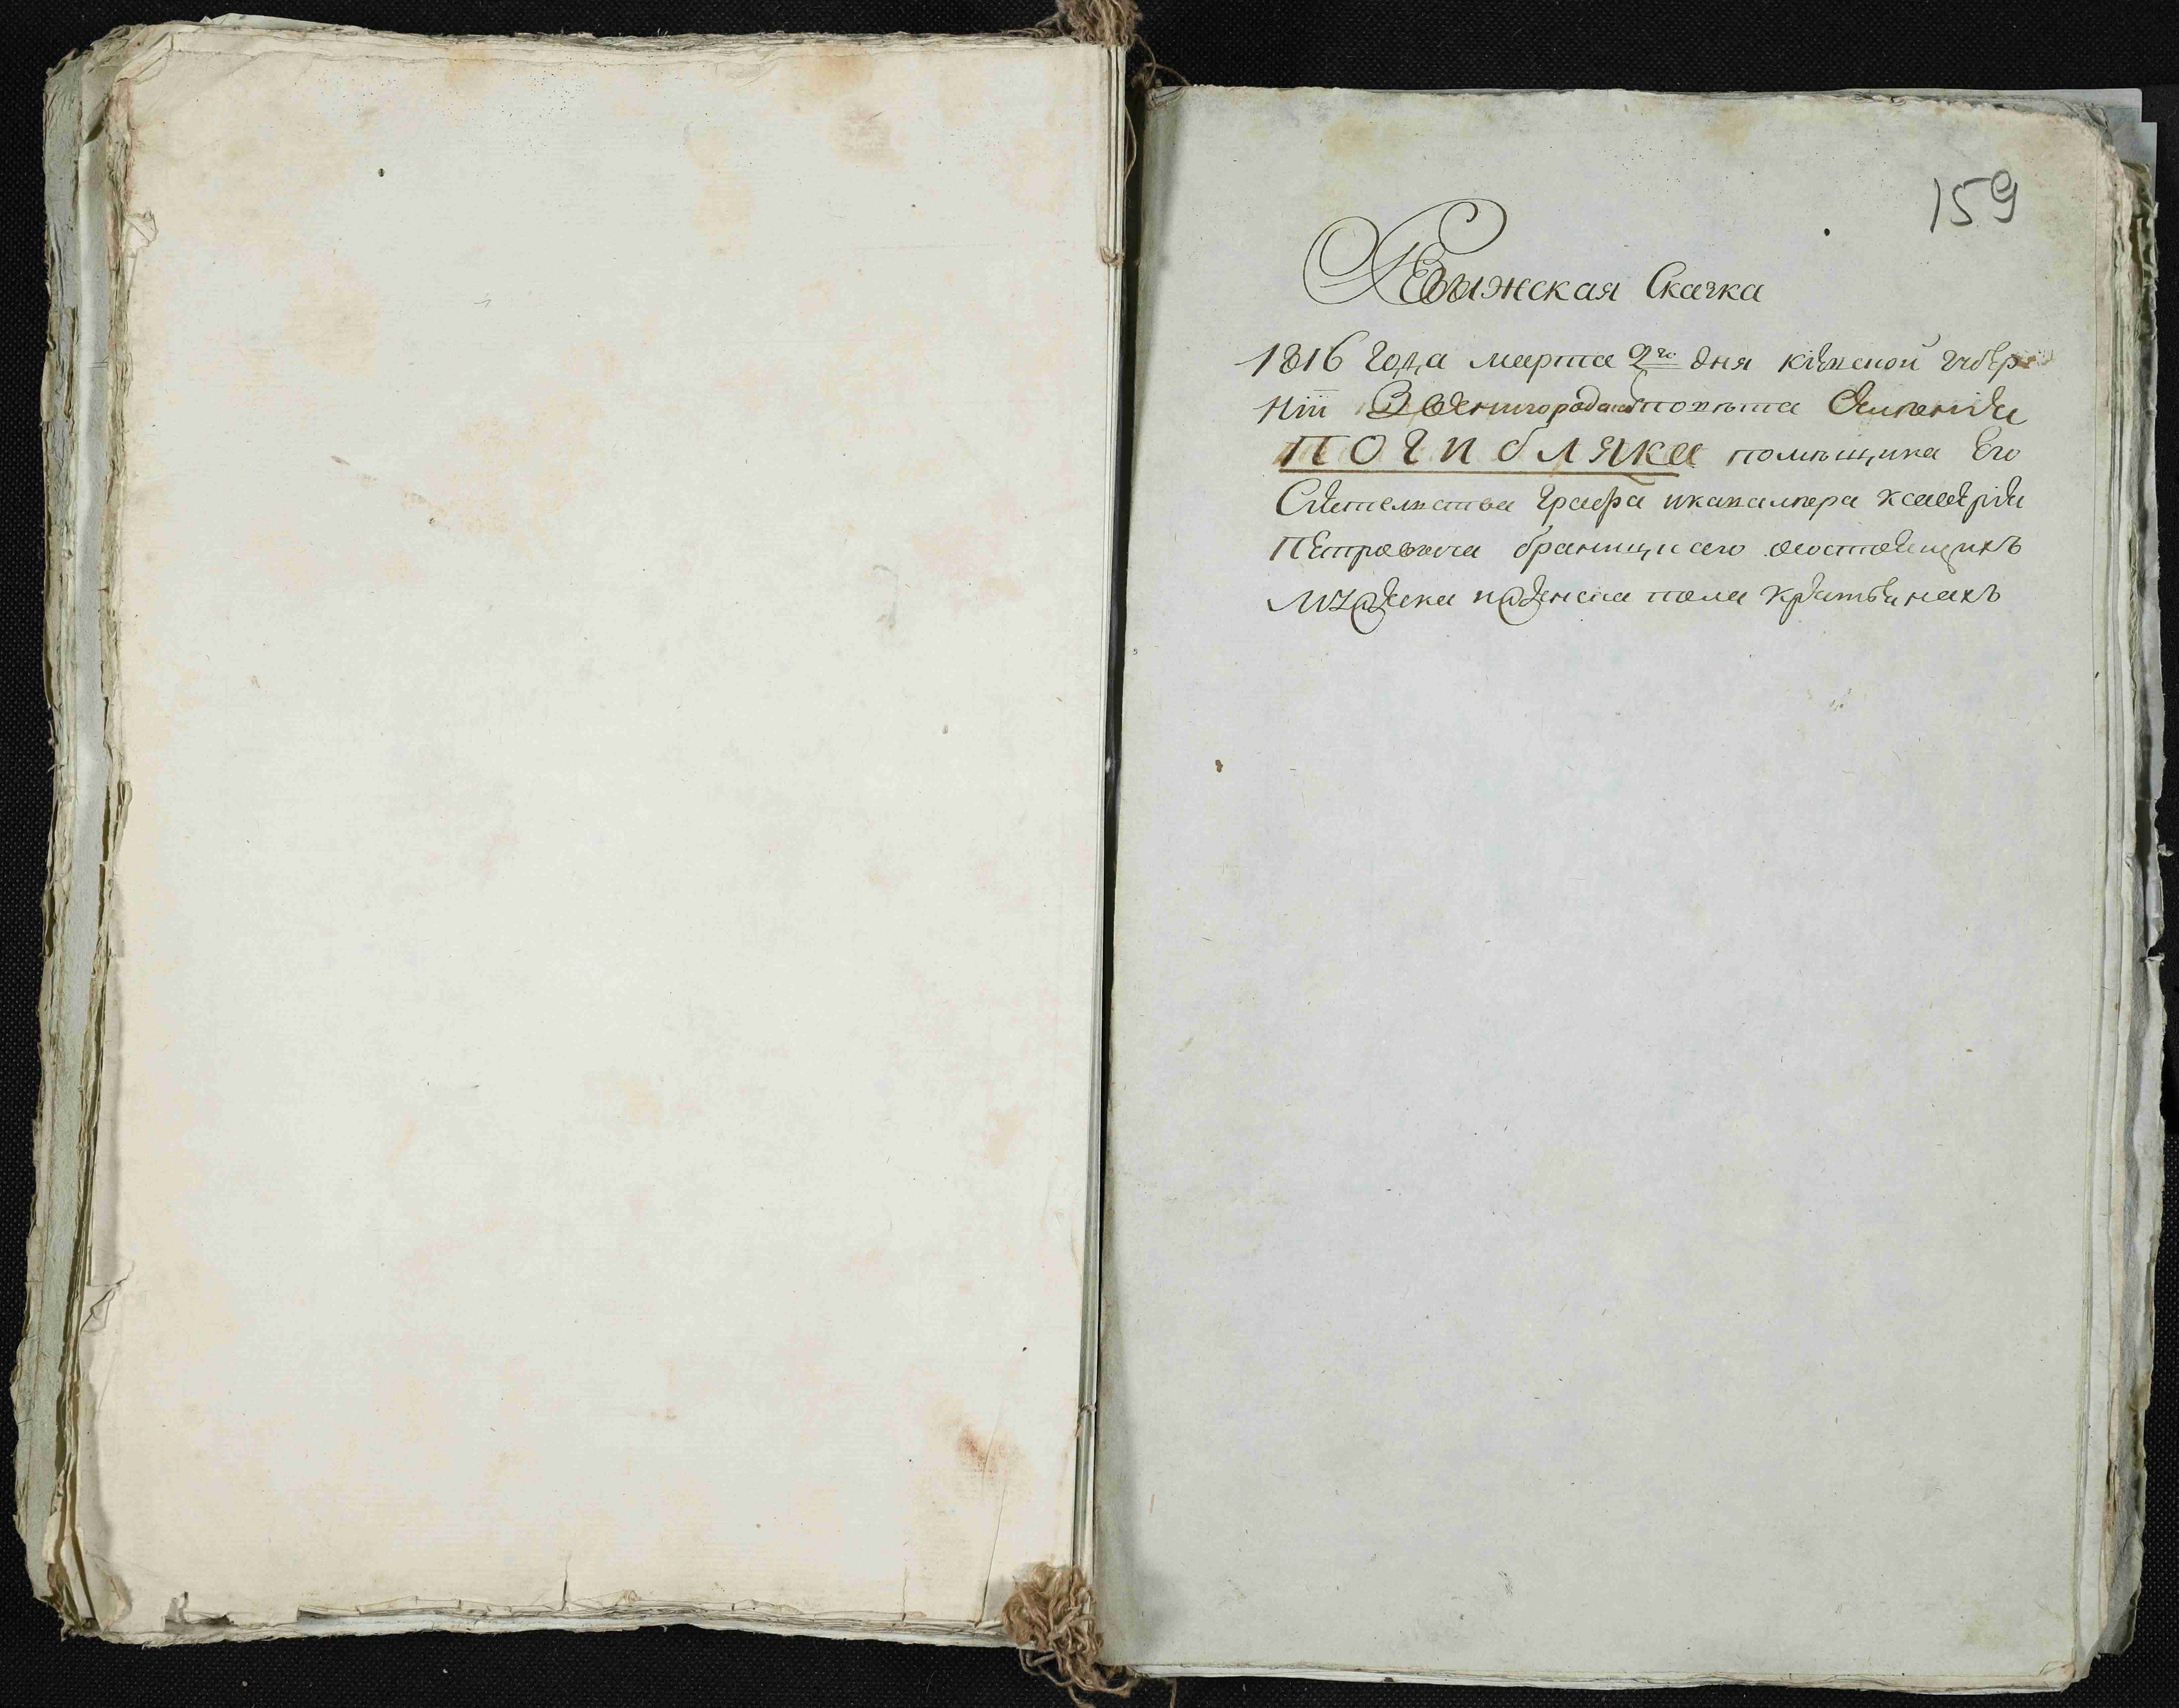 159
Ревижская Скаска
1816 года марта 9го дня киевской губер
нiи Звенигородскаго повѣта Селенiя
ПОГИБЛЯКА помѣщика Его
Сиятелства графа икавалера ксаверiя
Петровича браницкаго осостоящихъ
мужеска иженска пола крестьянахъ